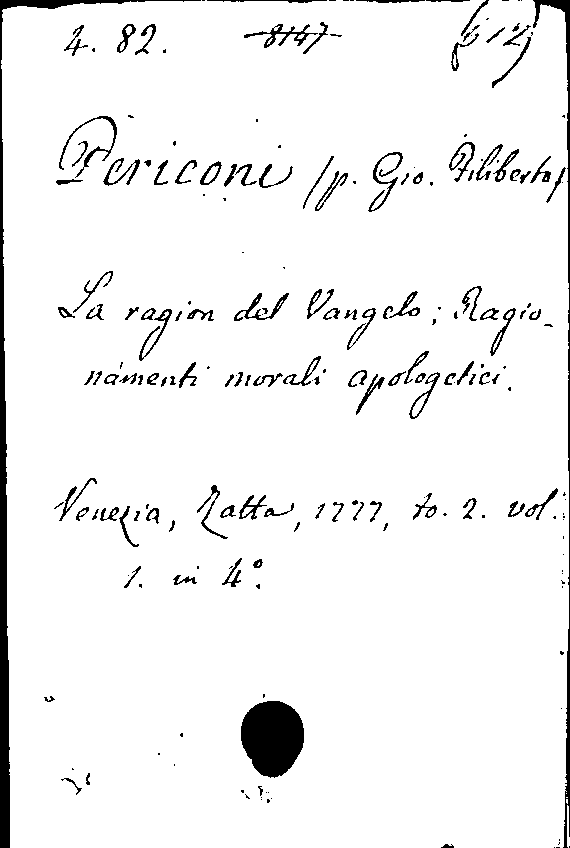 4. 82. 8147 (b 12)
Periconi /p. Gio. Filiberto/
La ragion del Vangelo; Ragio-
namenti morali apologetici.
Venezia, Zatta, 1777, to. 2. vol.
1. in 4°.